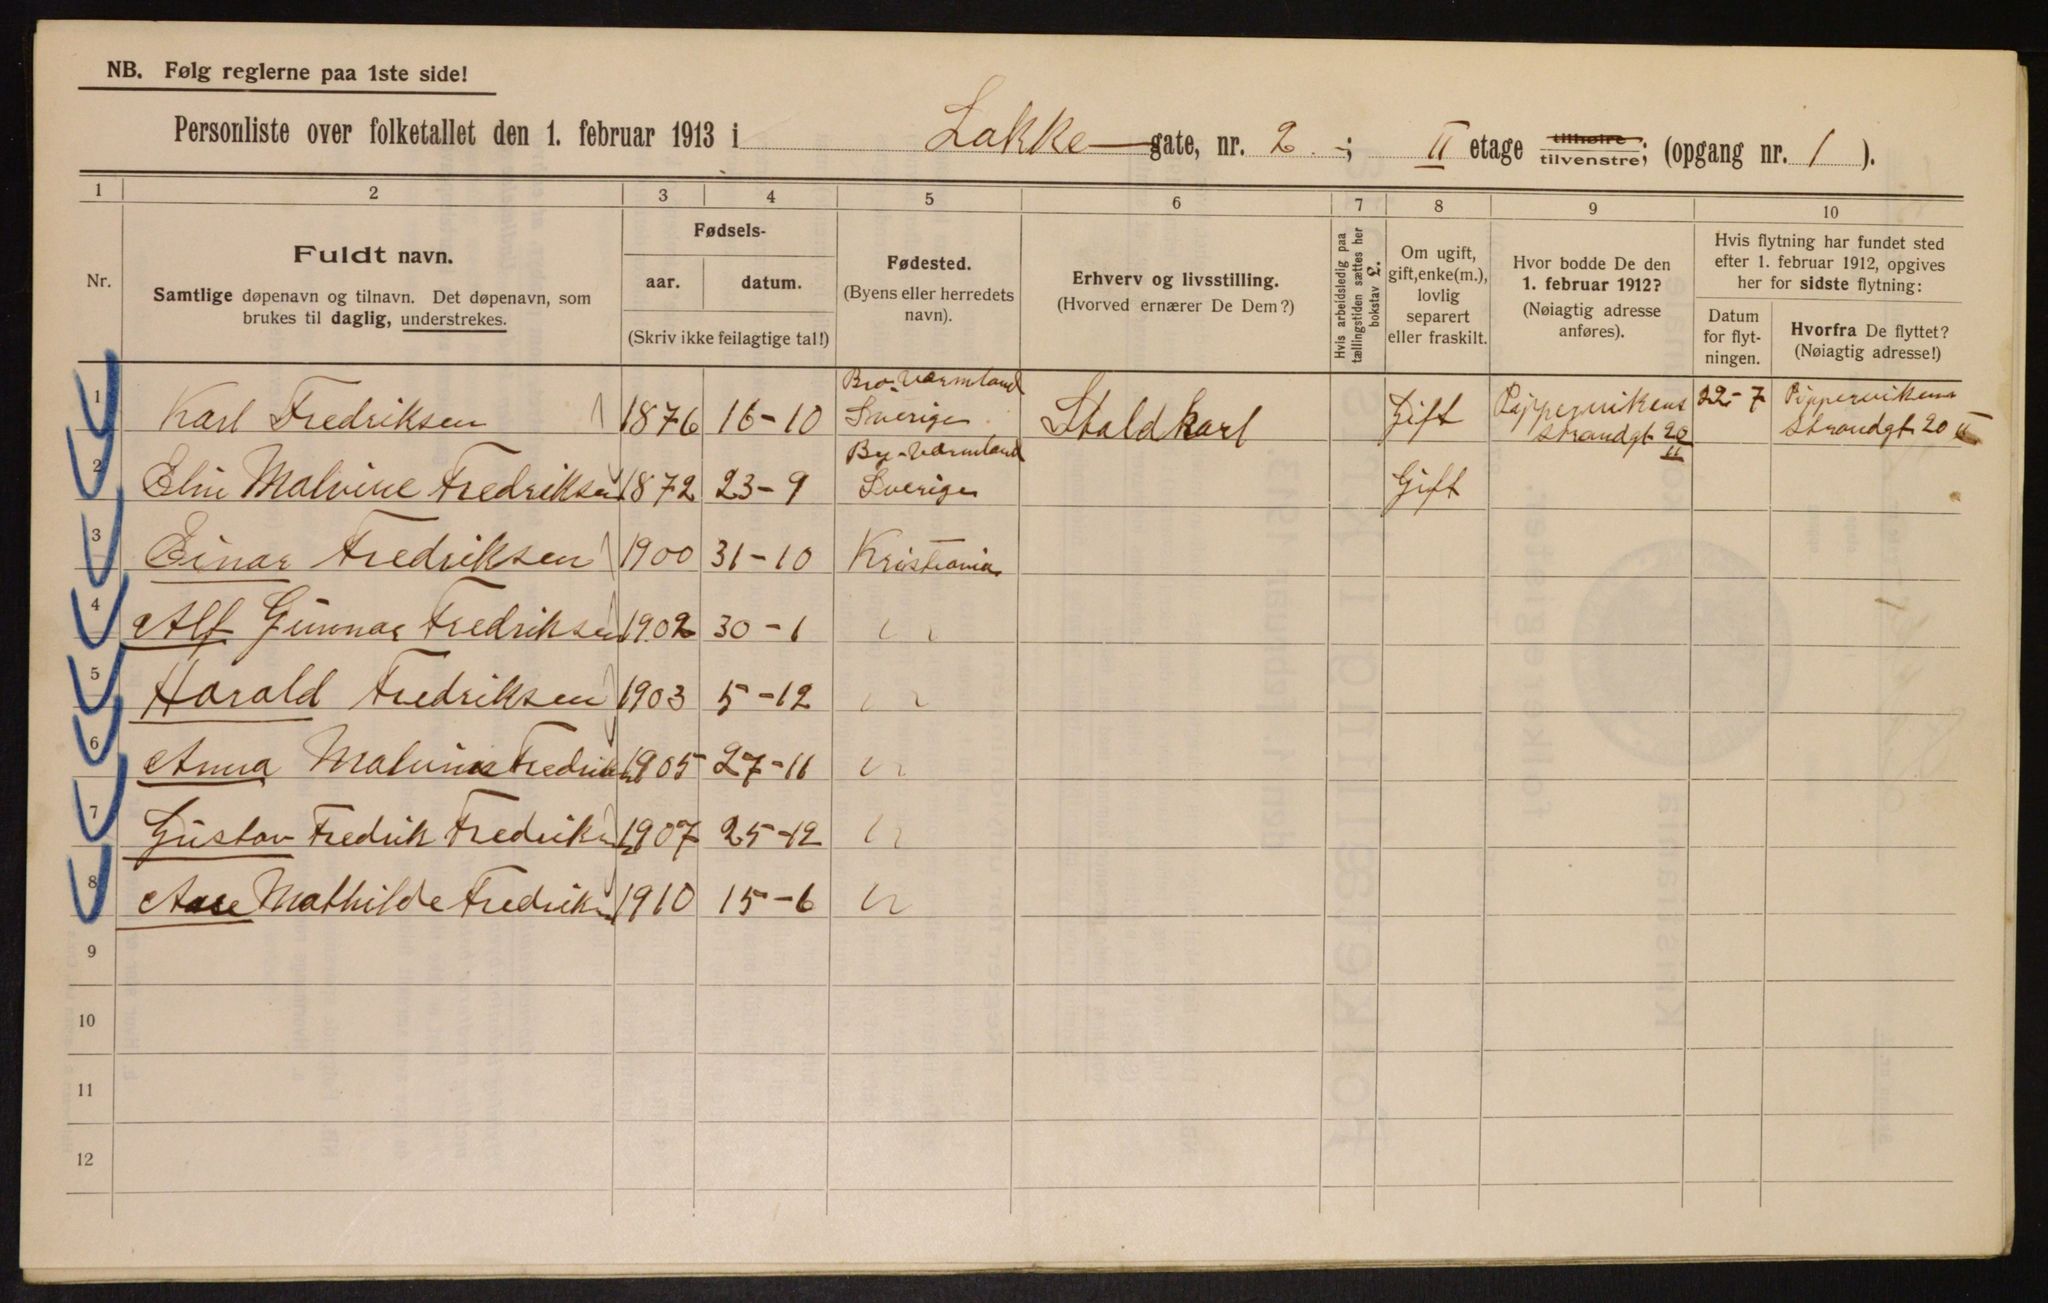 NB. Følg reglerne paa 1ste side!
Personliste over folketallet den 1. februar 1913 i Lakkegate, nr. 2 -; II etage tilhøire tilvenstre; (opgang nr. 1).
1 2 3 4 5 6 7 8 9 10
Nr.
Fuldt navn.
Samtlige døpenavn og tilnavn. Det døpenavn, som
brukes til daglig, understrekes.
Fødsels-
aar. datum.
(Skriv ikke feilagtige tal!)
Fødested.
(Byens eller herredets
navn).
Erhverv og livsstilling.
(Hvorved ernærer De Dem?)
Hvis arbeidsledig paa
tællingstiden sættes her
bokstav L.
Om ugift,
gift, enke(m.),
lovlig
separert
eller fraskilt.
Hvor bodde De den
1. februar 1912?
(Nøiagtig adresse
anføres).
Hvis flytning har fundet sted
efter 1. februar 1912, opgives
her for sidste flytning:
Datum
for flyt-
ningen.
Hvorfra De flyttet?
(Nøiagtig adresse!)
1 Karl Fredriksen 1876 16-10 Bro-Värmland Sverige Staldkarl Gift Pippervikens Strandgt 20 II 22-7 Pippervikens Strandgt 20 II
2 Elin Malvine Fredriksen 1872 23-9 By-Värmland Sverige Gift
3 Einar Fredriksen 1900 31-10 Kristiania
4 Alf Gunnar Fredriksen 1902 30-1 "
5 Harald Fredriksen 1903 5-12 "
6 Anna Malvine Fredriksen 1905 27-11 "
7 Gustav Fredrik Fredriksen 1907 25-12 "
8 Aase Mathilde Fredriksen 1910 15-6 "
9
10
11
12